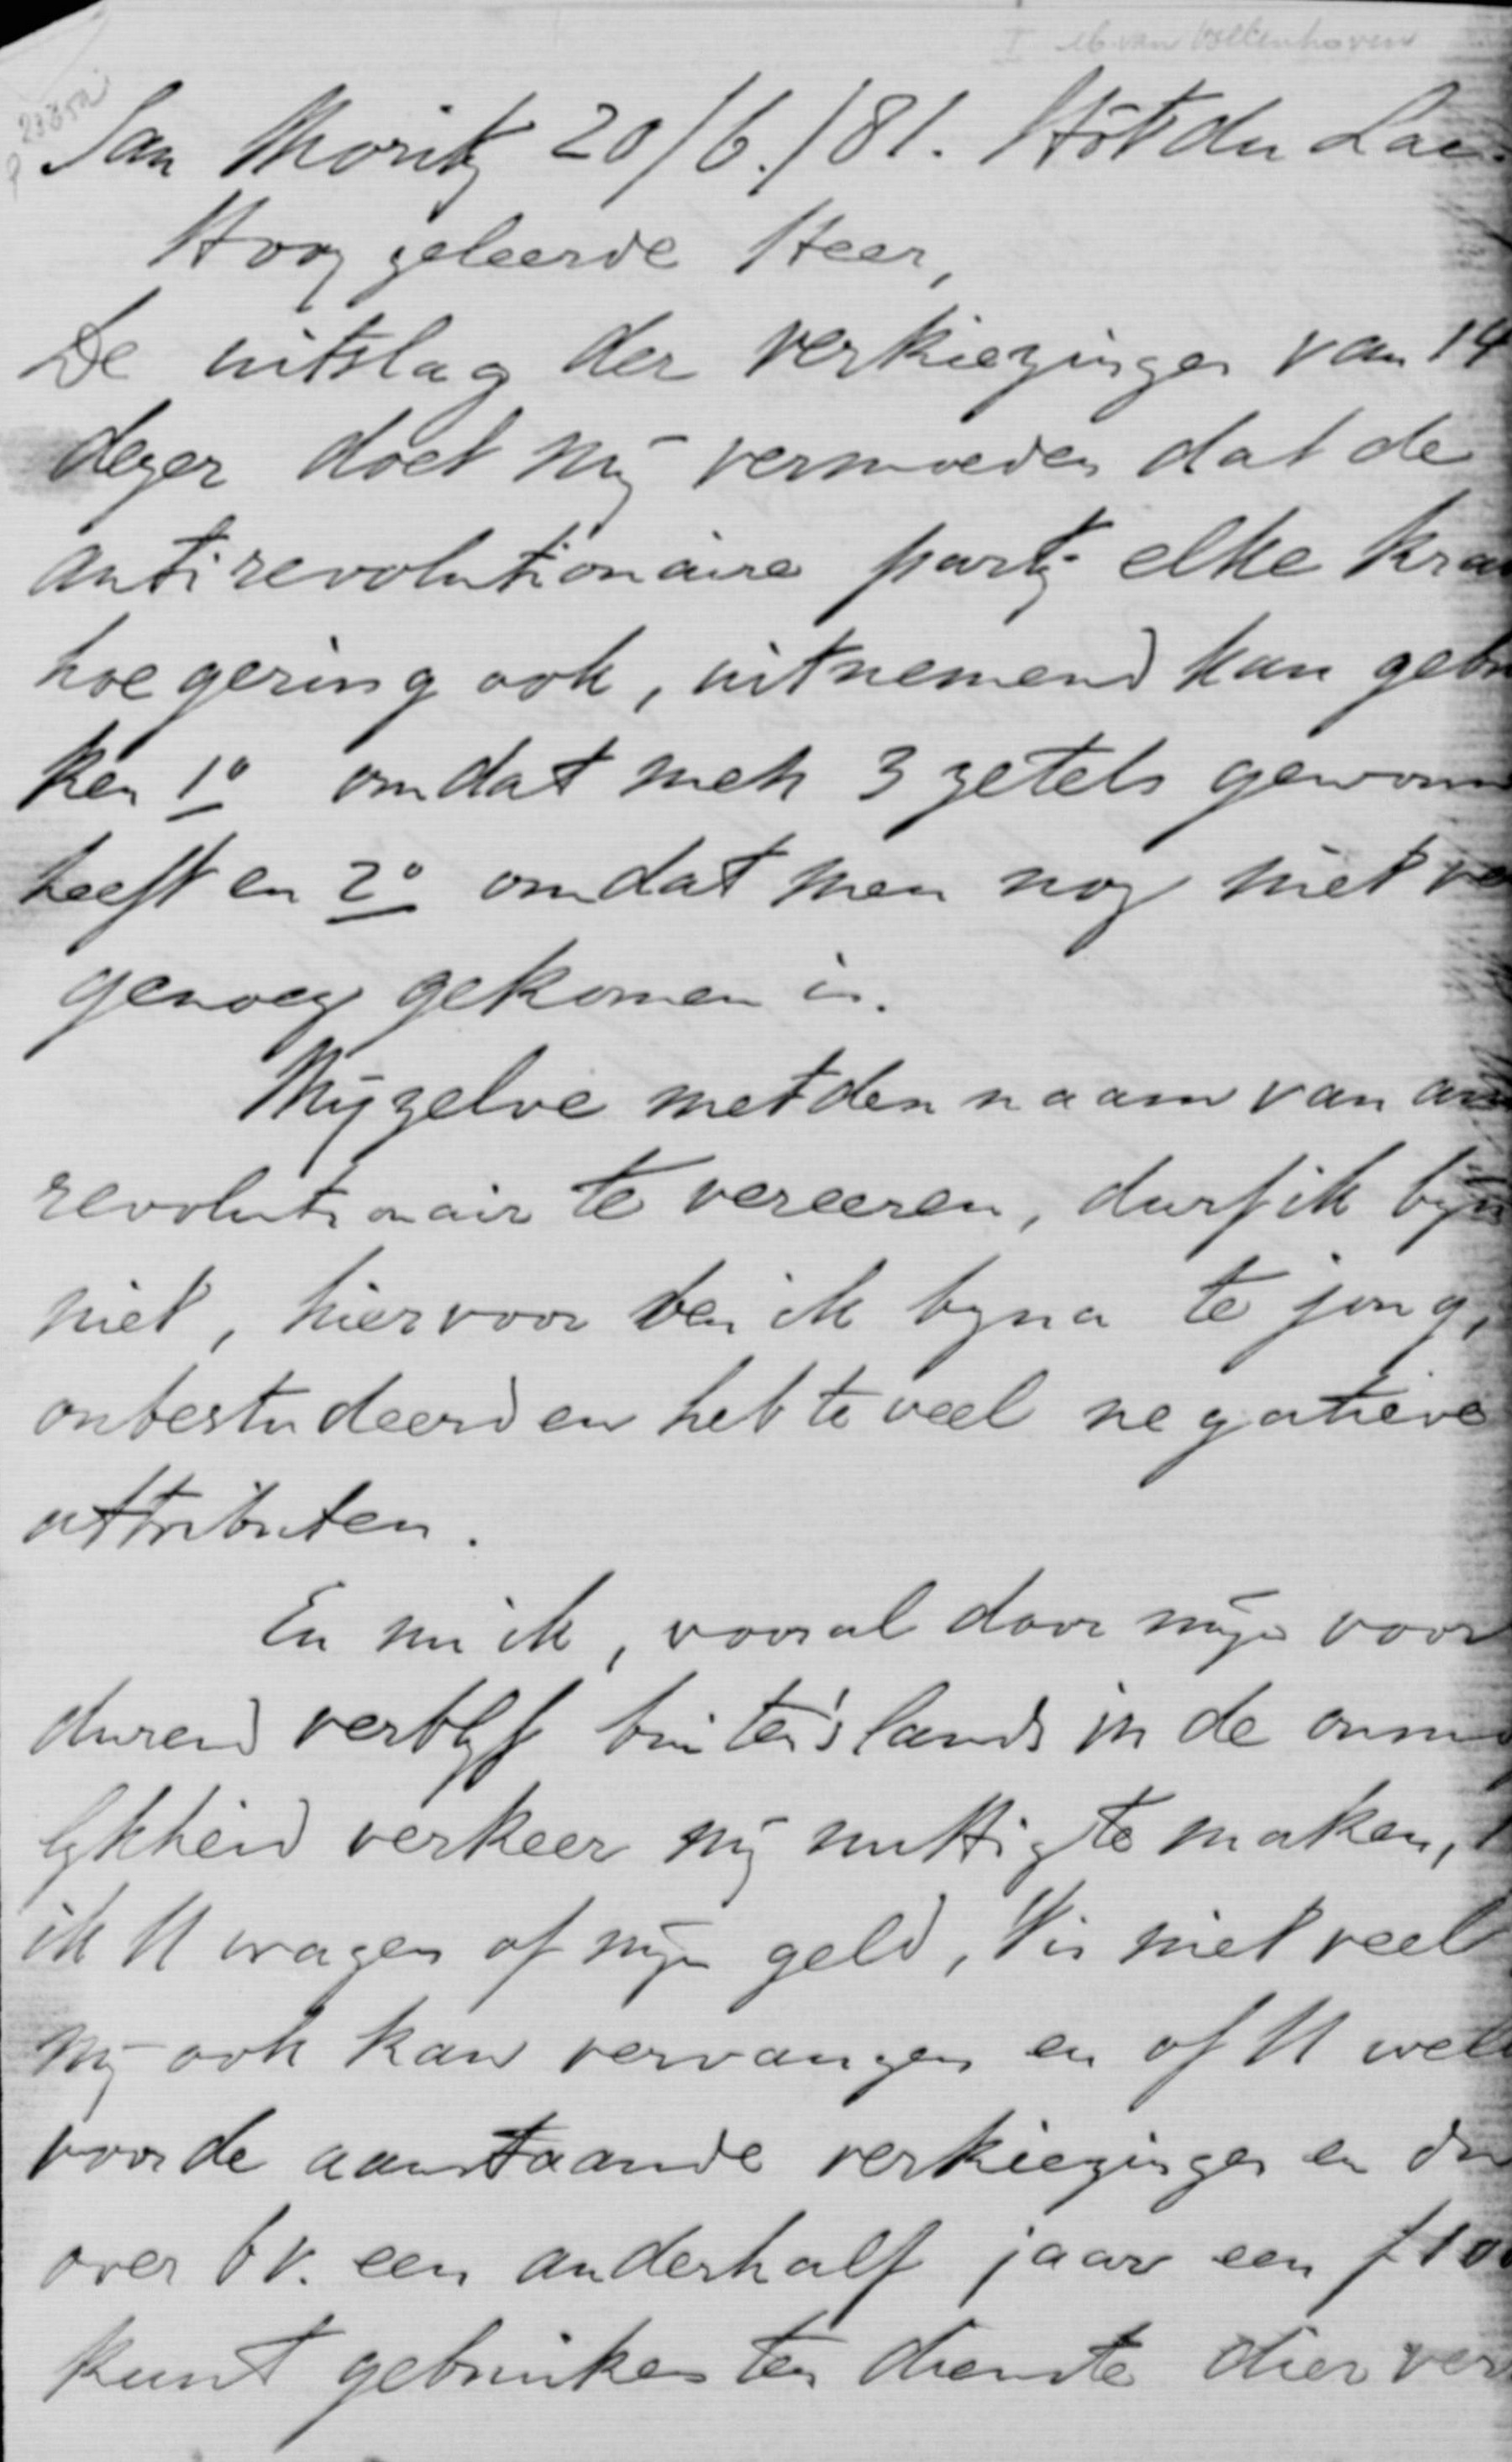 I M. van Vollenhoven
San Moritz 20/6./81. Hôt du Lac.
Hoog geleerde Heer,
De uitslag der verkiezingen van 14
dezer doet mij vermoeden dat de
antirevolutionaire partij elke kra
hoe gering ook, uitnemend kan gebru
ken 1o omdat men 3 zetels gewonn
heeft en 2o omdat men nog niet ve
genoeg gekomen is.
Mijzelve met den naam van an
revolutionair te vereeren, durf ik bijn
niet, hiervoor ben ik byna te jong,
onbestudeerd en heb te veel negatieve
attributen.
En nu ik, vooral door mijn voor
durend verblyf buiten's lands in de onmo
lykheid verkeer mij nuttig te maken,
ik U vragen of mijn geld, 't is niet veel
mij ook kan vervangen en of U wel
voor de aanstaande verkiezingen en
over bv. een anderhalf jaar een f 100
kunt gebruiken ten dienste dier ver